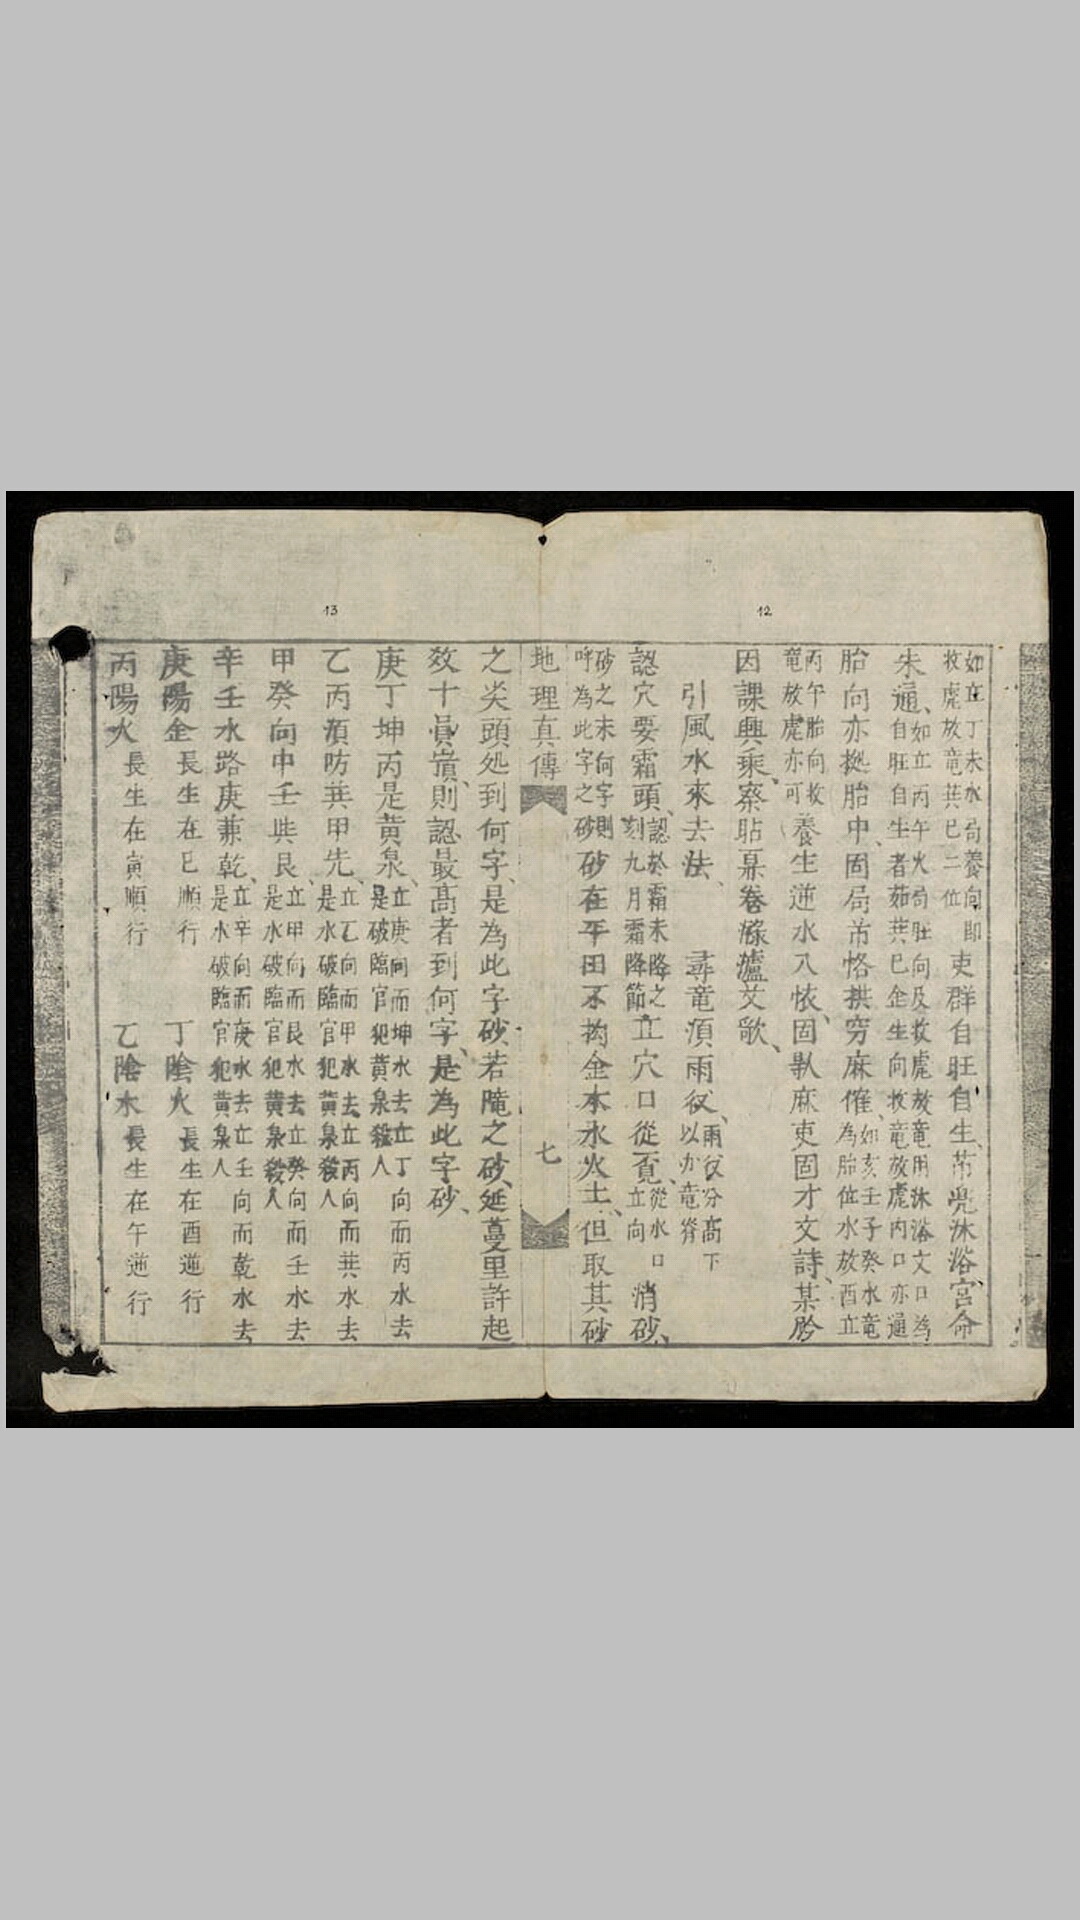 12
如立丁未水局養向即
收虎放竜巽巳二位
吏群自旺自生、芇兠沐浴宮、命
朱通、
如立丙午火局旺向及收虎放竜用沐浴文口為
自旺自生者茹巽巳企生向收竜放虎内口亦通
胎向亦拠胎中、固局芇恪拱穷麻催、
如亥壬子癸水竜
為胎位水放酉立
丙午胎向收
竜放虎亦可
養生逆水入𢚸、固㝵麻吏固才文詩、某
因課興乘、察貼
艾歌、
引風水來去法、
尋竜湏雨㕛、
雨㕛分髙下
以办竜脊
認穴要霜頭、
認於霜未降之
刻九月霜降節
立穴口從
從水口
立向
消砂、
砂之未何字則
呼為此字之砂
砂在平田不拘金木水火土、但取其砂
地理真傳
七
13
之尖頭処到何字、是為此字砂、若隴之砂、延蔓里許起
效十員嶺、則認最髙者到何字、是為此字砂、
庚丁坤丙是黄泉、
立庚向而坤水去立丁向而丙水去
是破臨官犯黄泉殺人
乙丙湏昉巽甲先、
立乙向而甲水去立丙向而巽水去
是水破臨官犯黄泉殺人
甲癸向中壬与艮、
立甲向而艮水去立癸向而壬水去
是水破臨官犯黄泉殺人
辛壬水路庚兼乾、
立辛向而庚水去立壬向而乾水去
是水破臨官犯黄泉人
庚陽金
長生在巳順行
丁陰火
長生在酉逆行
丙陽火
長生在寅順行
乙陰木
長生在午逆行